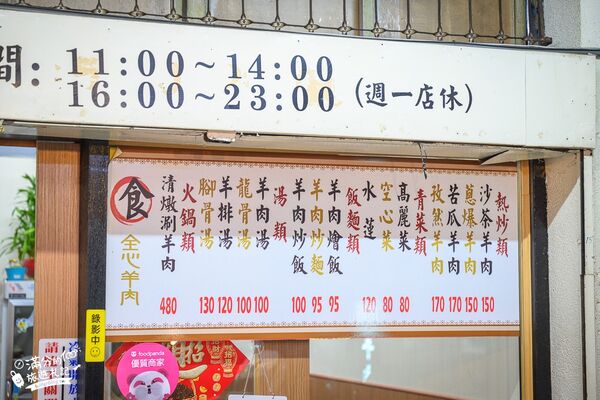 間: 11:00~14:00
16:00~23:00 (週一店休)
熱炒類
沙茶羊肉 150
蔥爆羊肉 150
苦瓜羊肉 170
孜然羊肉 170
青菜類
高麗菜 80
空心菜 80
水蓮 120
飯麵類
羊肉燴飯 95
羊肉炒麵 95
羊肉炒飯 100
湯類
羊肉湯 100
龍骨湯 100
羊排湯 120
腳骨湯 130
火鍋類
清燉涮羊肉 480
食
全心羊肉
錄影中
foodpanda
優質商家
請
關
冷氣